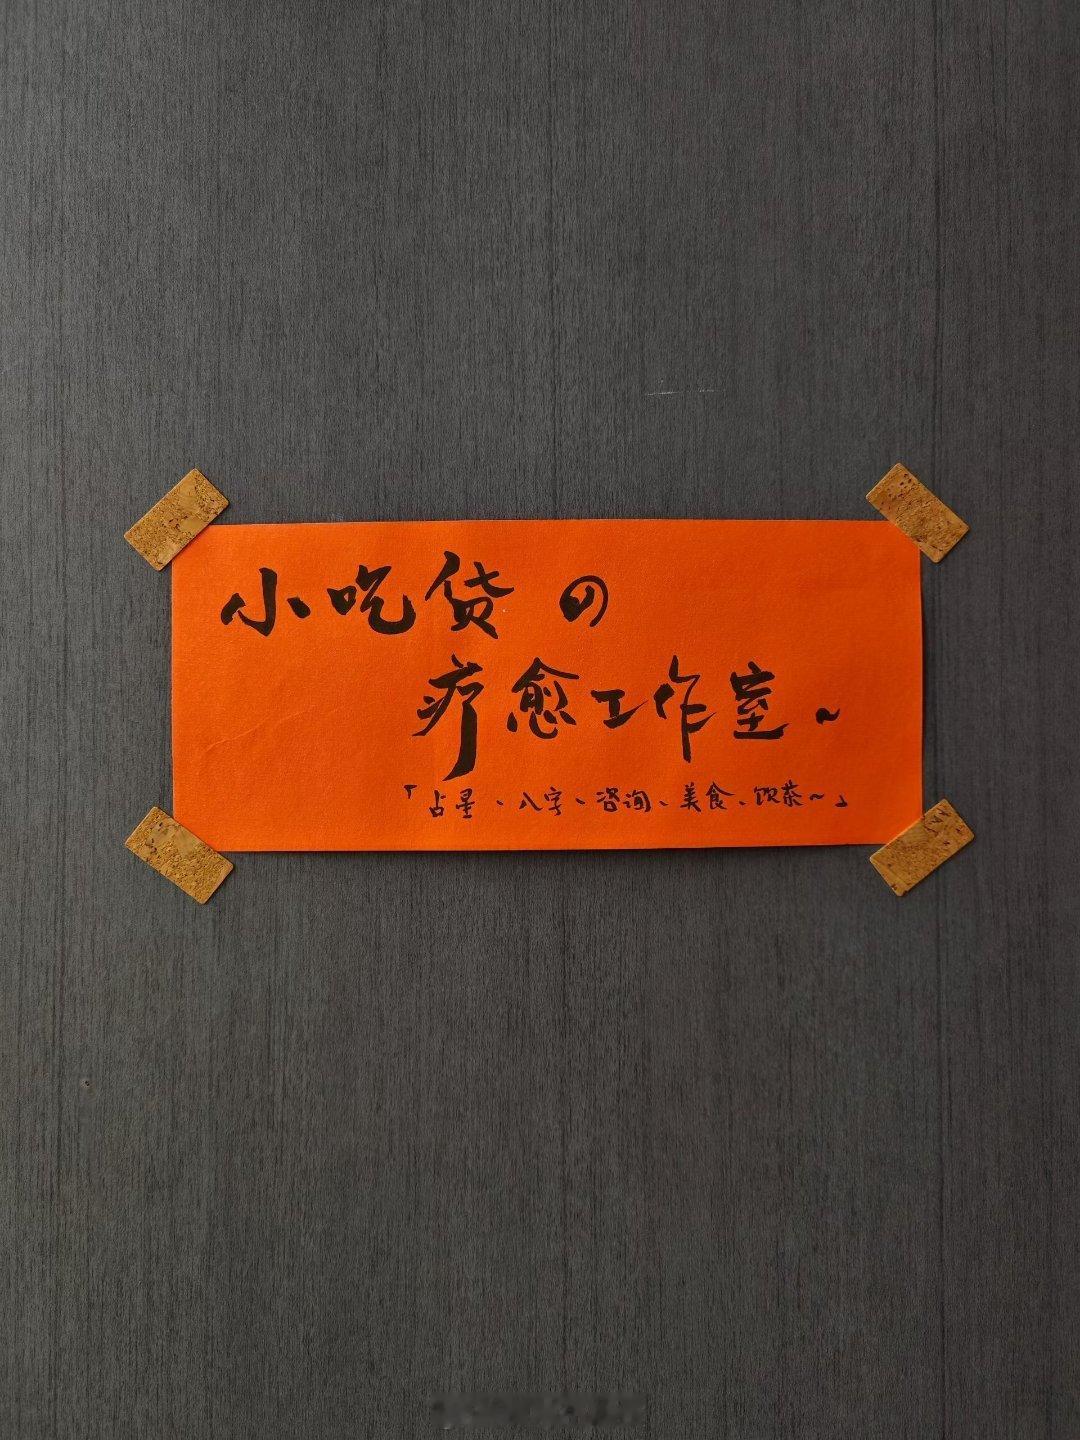 小吃货の
疗愈工作室~
「占星、八字、咨询、美食、饮茶~」